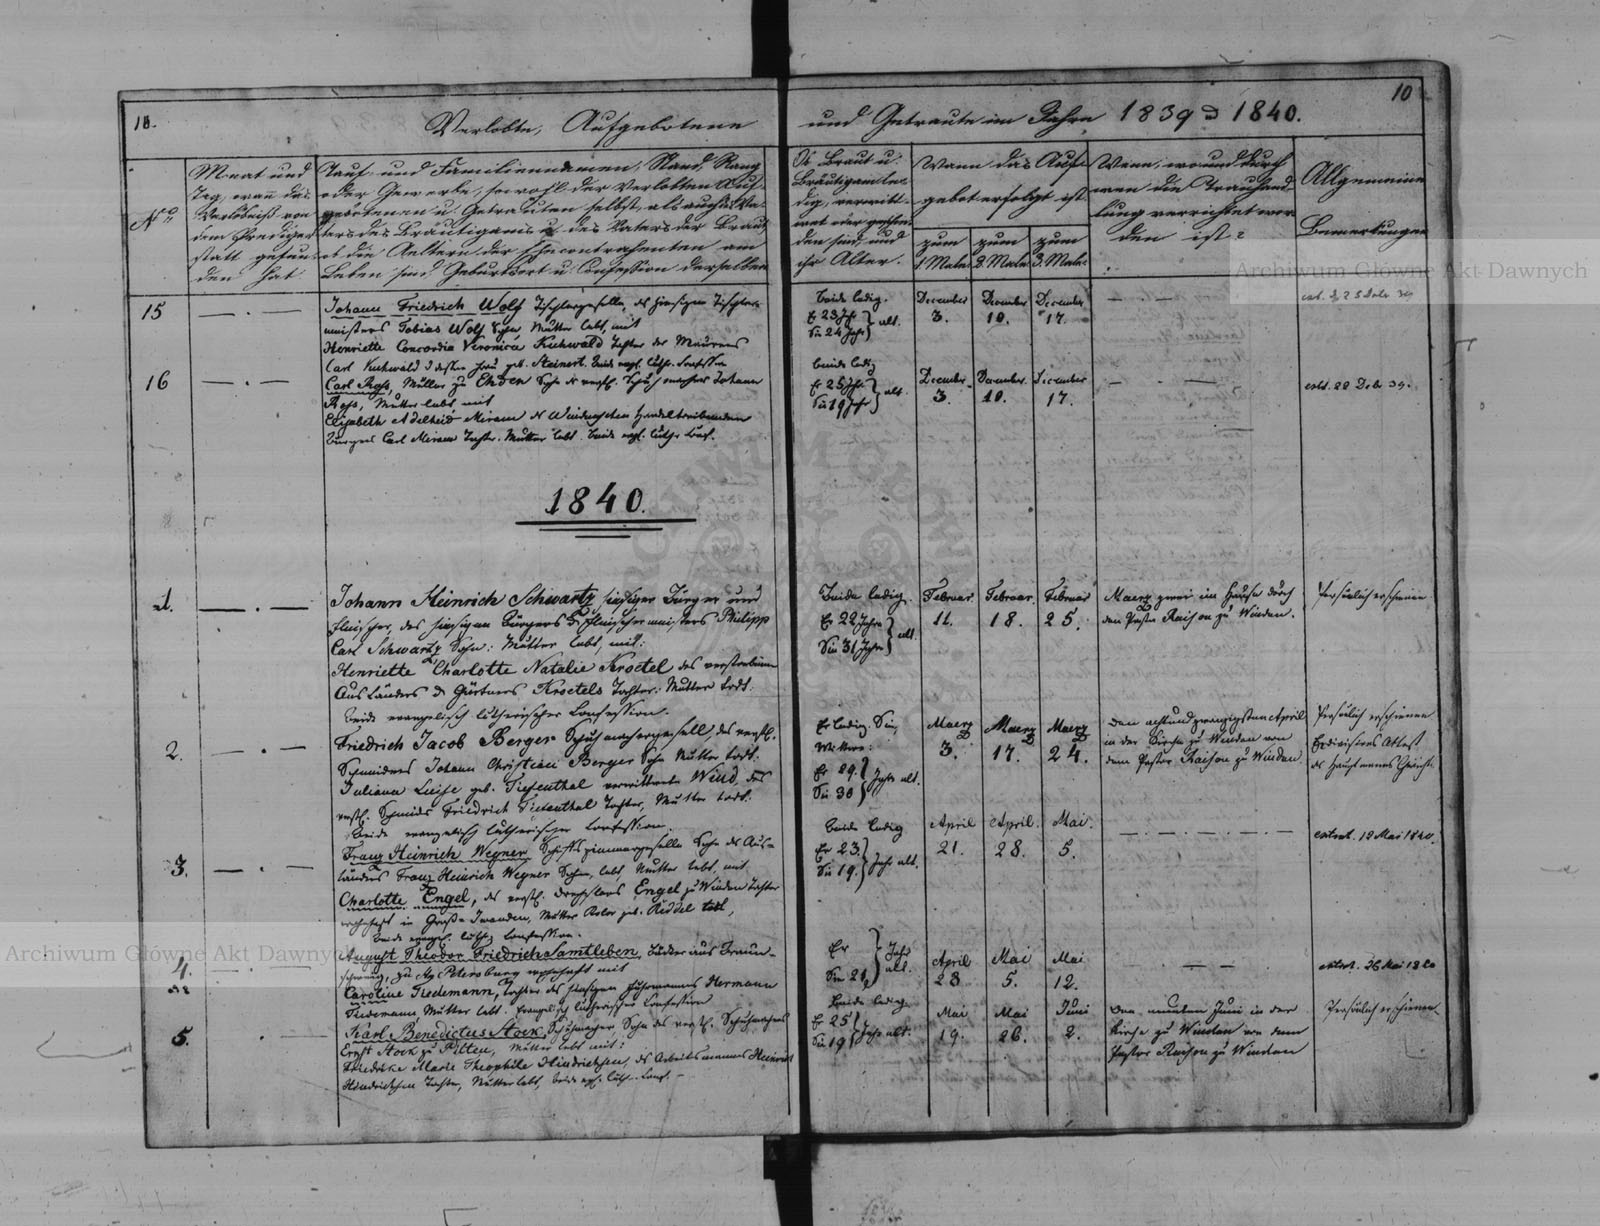 10.
Verlobte, Aufgebotene
und Getraute im Jahre 1839 & 1840.
10
No
Monat und
Tag, wann das
Verlöbniß von
dem Prediger
statt gefun-
den hat
Tauf- und Familiennamen, Stand, Rang
oder Gewerbe, sowohl der Verlobten Auf-
gebotenen u. Getrauten selbst, als auch des Va-
ters des Bräutigams u. des Vaters der Braut
ob die Aeltern der Ehecontrahenten am
Leben sind Geburtsort u. Confession derselben
Ob Braut u.
Bräutigam le-
dig, verwitt-
wet oder geschie-
den sind, und
ihr Alter.
Wann das Auf-
gebot erfolgt ist
zum
1. Male.
zum
2. Male.
zum
3. Male.
Wann, wo und durch
wen die Trauhand-
lung verrichtet wor-
den ist?
Allgemeine
Bemerkungen
15
Johann Friedrich Wolf Tischlergeselle, des hiesigen Tischler-
meisters Tobias Wolf Sohn Mutter lebt, mit
Henriette Concordia Veronica Kuhwald Tochter des Maurers
Carl Kuhwald & dessen Frau geb. Steinert. Beide evgl. luth. Confession
beide ledig.
Er 23 Jahr
Sie 24 Jahr alt.
December
3.
December
10.
December
17.
16
Carl Ross, Müller zu Sohn des verst. Johann
Ross, Mutter lebt, mit
Elisabeth Adelheid des Windauschen Handeltreibenden
Bürgers Carl Tochter. Mutter lebt. Beide evgl. luth. Conf.
beide ledig
Er 25 Jahr
Sie 19 Jahr alt.
December
3.
December
10.
December
17.
extr. 28 Decbr 39.
1840.
1.
Johann Heinrich Schwartz, hiesiger Bürger und
Fleischer, des hiesigen Bürgers & Fleischermeisters Philipp
Carl Schwartz Sohn: Mutter lebt, mit:
Henriette Charlotte Natalie Kroetel des verstorbenen
Ausländers & Gärtners Kroetels Tochter: Mutter todt.
beide evangelisch lutherischer Confession.
Beide ledig.
Er 22 Jahr
Sie 31 Jahr alt.
Februar
11.
Februar
18.
Februar
25.
Maerz zwei im Hause durch
den Pastor Raison zu Windau.
Persönlich erschienen
2.
Friedrich Jacob Berger Schuhmachergesell, des verst.
Schneiders Johann Christian Berger Sohn Mutter todt.
Juliana Luise geb. Tiefenthal verwittwete Wind, des
verst. Schmieds Friedrich Tiefenthal Tochter, Mutter todt.
Beide evangelisch lutherischer Confession.
Er ledig. Sie,
Wittwe:
Er 29.
Sie 30 Jahr alt.
Maerz
3.
Maerz
17.
Maerz
24.
Den achtundzwanzigsten April
in der Kirche zu Windau von
dem Pastor Raison zu Windau.
Persönlich erschienen
3.
Franz Heinrich Wegner Schiffszimmergeselle Sohn des Aus-
länders Franz Heinrich Wegner Sohn, lebt, Mutter lebt, mit
Charlotte Engel, des verst. Drechslers Engel zu Windau Tochter
wohnhaft in Mutter geb. Riddel todt,
Beide evangel. luth. Confession.
beide ledig
Er 23.
Sie 19. Jahr alt.
April
21.
April
28.
Mai
5.
extrat. 12 Mai 1840.
4.
August Theodor Friedrich Samtleben, Bäcker aus Braun-
schweig, zu St Petersburg wohnhaft mit
Caroline Tiedemann, Tochter des hiesigen Fuhrmanns Hermann
Tiedemann Mutter lebt. Evangelisch lutherischer Confession
Er
Sie 21, Jahr alt.
April
28
Mai
5.
Mai
12.
extrat. 26 Mai 1840
5.
Karl Benedictus Stock, Schuhmacher, Sohn des verst. Schuhmachers
Ernst Stock zu Pilten, Mutter lebt mit:
Friedrike Marie Theophile Hindrichsen, des Arbeitsmannes Heinrich
Hindrichsen Tochter, Mutter lebt, beide evgl. luth. Conf.
Beide ledig.
Er 25
Sie 19 Jahr alt.
Mai
19.
Mai
26.
Juni
2.
Den neunten Juni in der
Kirche zu Windau von dem
Pastor Raison zu Windau
Persönlich erschienen
Archiwum Główne Akt Dawnych
Archiwum Główne Akt Dawnych